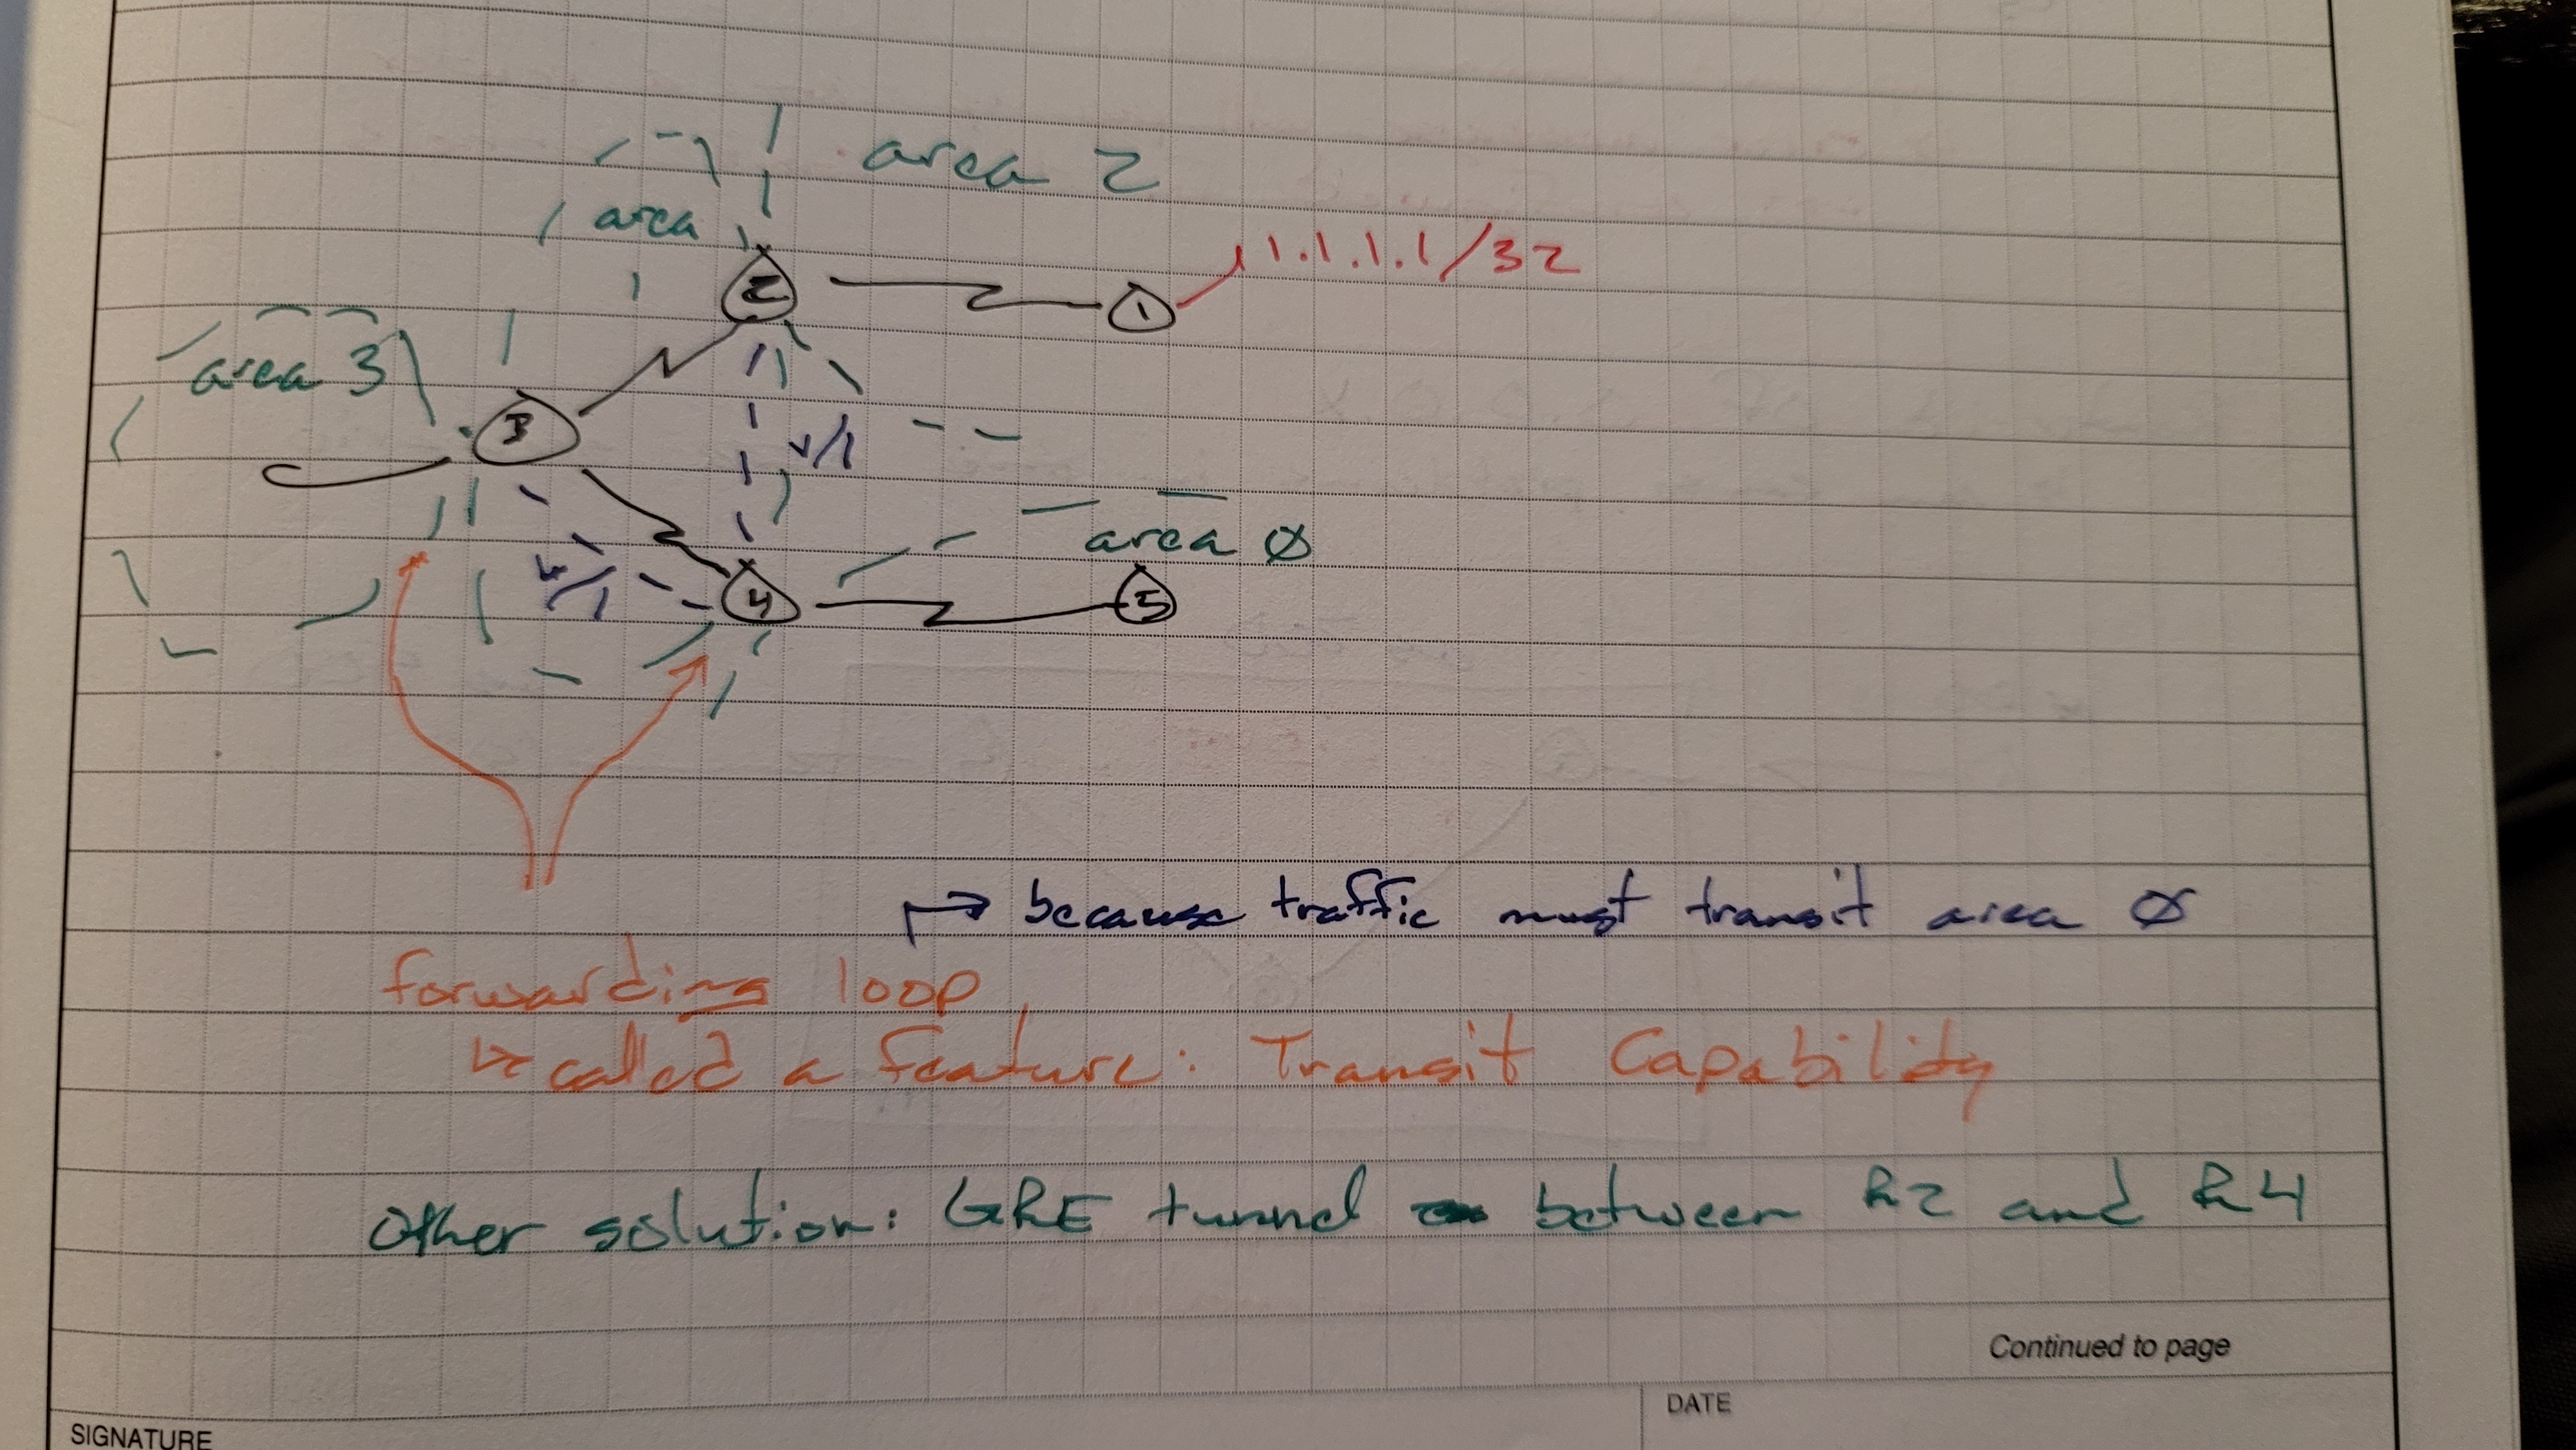 area 2
area 1
2
1
1.1.1.1/32
area 3
3
v/l
area Ø
v/l
4
5
↱ because traffic must transit area Ø
forwarding loop
↳ called a feature: Transit Capability
Other solution: GRE tunnel between R2 and R4
Continued to page
DATE
SIGNATURE